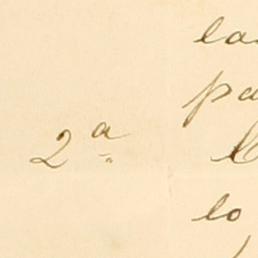 la
pa
2ª
lo